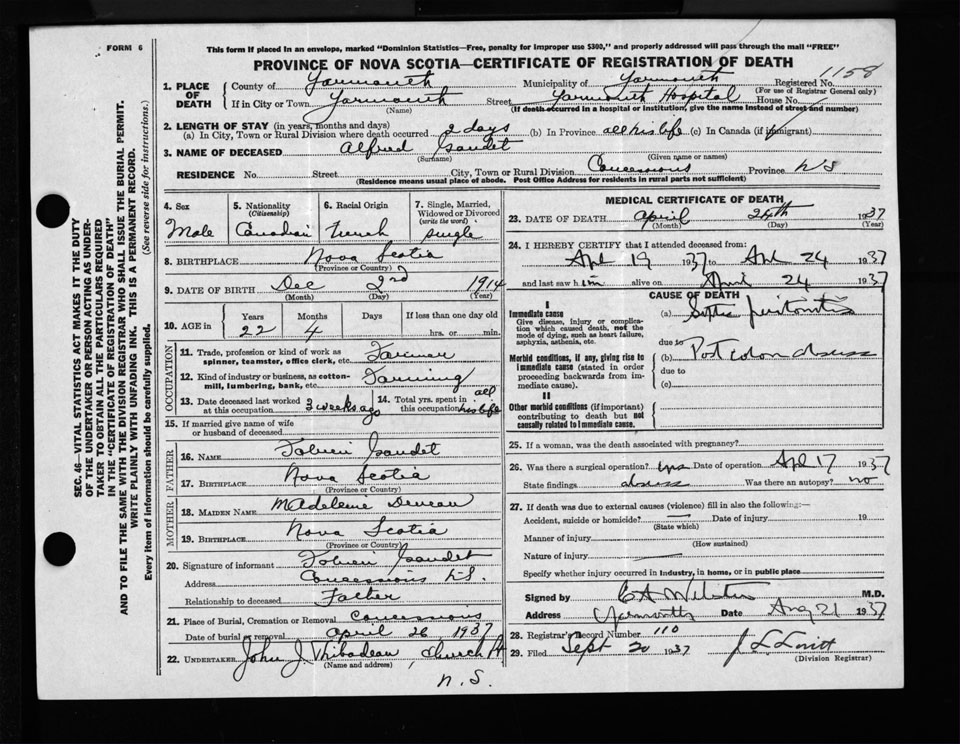 FORM 6
This form if placed in an envelope, marked "Dominion Statistics—Free, penalty for improper use $300," and properly addressed will pass through the mail "FREE"
PROVINCE OF NOVA SCOTIA—CERTIFICATE OF REGISTRATION OF DEATH
1158
1. PLACE OF DEATH
County of Yarmouth Municipality of Yarmouth Registered No.
(For use of Registrar General only)
If in City or Town Yarmouth Street Yarmouth Hospital House No.
(Name) (If death occurred in a hospital or institution, give the name instead of street and number)
2. LENGTH OF STAY (in years, months and days)
(a) In City, Town or Rural Division where death occurred 2 days (b) In Province all his life (c) In Canada (if immigrant)
3. NAME OF DECEASED Alfred Gaudet
(Surname) (Given name or names)
RESIDENCE No. Street City, Town or Rural Division Concessions Province N S
(Residence means usual place of abode. Post Office Address for residents in rural parts not sufficient)
4. Sex Male
5. Nationality (Citizenship) Canadian
6. Racial Origin French
7. Single, Married, Widowed or Divorced (write the word) single
8. BIRTHPLACE Nova Scotia
(Province or Country)
9. DATE OF BIRTH Dec 2nd 1914
(Month) (Day) (Year)
10. AGE in Years Months Days If less than one day old
22 4 hrs. or min.
OCCUPATION
11. Trade, profession or kind of work as spinner, teamster, office clerk, etc. Farmer
12. Kind of industry or business, as cotton-mill, lumbering, bank, etc. Farming
13. Date deceased last worked at this occupation 3 weeks ago
14. Total yrs. spent in this occupation all his life
15. If married give name of wife or husband of deceased
FATHER
16. NAME Gaudet
17. BIRTHPLACE Nova Scotia
(Province or Country)
MOTHER
18. MAIDEN NAME Madeleine Deveau
19. BIRTHPLACE Nova Scotia
(Province or Country)
20. Signature of informant Gaudet
Address Concessions N.S.
Relationship to deceased Father
21. Place of Burial, Cremation or Removal Concessions
Date of burial or removal April 26 1937
22. UNDERTAKER John J Thibadeau, Church Pt
(Name and address)
N.S.
MEDICAL CERTIFICATE OF DEATH
23. DATE OF DEATH April 24th 1937
(Month) (Day) (Year)
24. I HEREBY CERTIFY that I attended deceased from:
Apl 19 1937 to Apl 24 1937
and last saw him alive on April 24 1937
CAUSE OF DEATH
I
Immediate cause
Give disease, injury or complication which caused death, not the mode of dying, such as heart failure, asphyxia, asthenia, etc.
(a) Septic peritonitis
due to
Morbid conditions, if any, giving rise to immediate cause (stated in order proceeding backwards from immediate cause).
(b) Post colon abscess
due to
(c)
II
Other morbid conditions (if important) contributing to death but not causally related to immediate cause.
25. If a woman, was the death associated with pregnancy?
26. Was there a surgical operation? yes Date of operation Apl 17 1937
State findings abscess Was there an autopsy? no
27. If death was due to external causes (violence) fill in also the following:—
Accident, suicide or homicide? Date of injury 19
(State which)
Manner of injury
(How sustained)
Nature of injury
Specify whether injury occurred in industry, in home, or in public place
Signed by C A Webster M.D.
Address Yarmouth Date Aug 21 1937
28. Registrar's Record Number 110
29. Filed Sept 20 1937
(Division Registrar)
SEC. 46—VITAL STATISTICS ACT MAKES IT THE DUTY
OF THE UNDERTAKER OR PERSON ACTING AS UNDERTAKER TO OBTAIN ALL THE PARTICULARS REQUIRED
IN THE "CERTIFICATE OF REGISTRATION OF DEATH"
AND TO FILE THE SAME WITH THE DIVISION REGISTRAR WHO SHALL ISSUE THE BURIAL PERMIT.
WRITE PLAINLY WITH UNFADING INK. THIS IS A PERMANENT RECORD.
Every item of information should be carefully supplied. (See reverse side for instructions.)